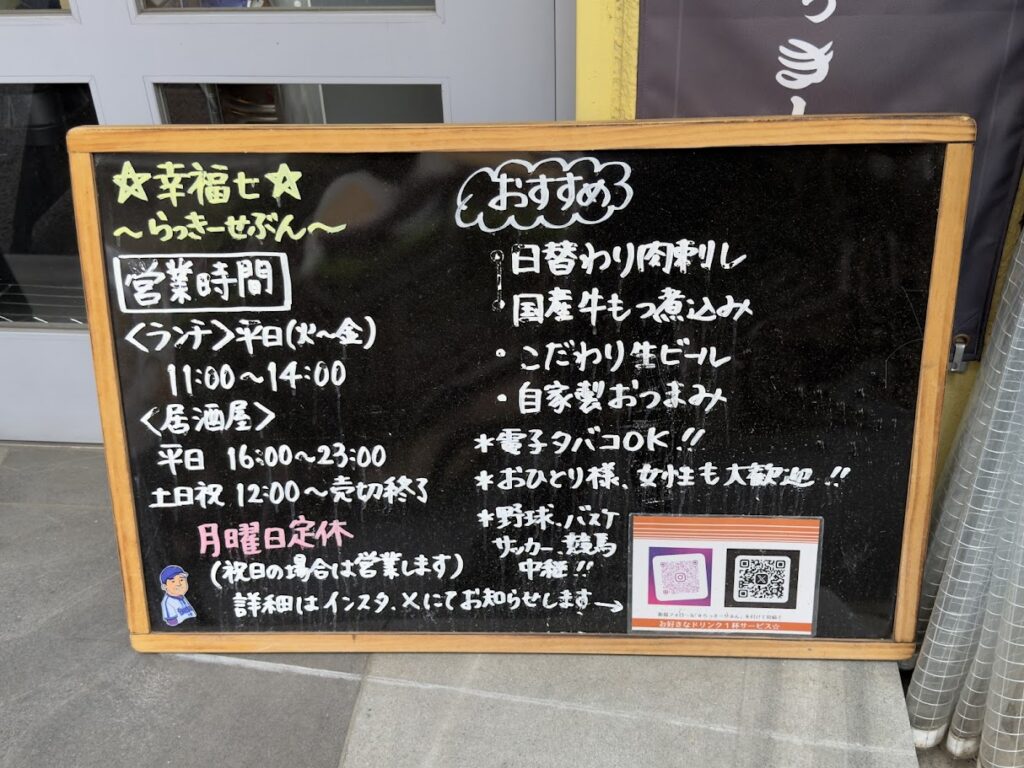 ☆幸福七☆
～らっきーせぶん～
営業時間
<ランチ>平日(火～金)
11:00～14:00
<居酒屋>
平日 16:00～23:00
土日祝 12:00～売切終了
月曜日定休
(祝日の場合は営業します)
詳細はインスタ、Xにてお知らせします→
おすすめ
・日替わり肉刺し
・国産牛もつ煮込み
・こだわり生ビール
・自家製おつまみ
*電子タバコOK!!
*おひとり様、女性も大歓迎!!
*野球、バスケ
サッカー、競馬
中継!!
お好きなドリンク1杯サービス☆
っきー